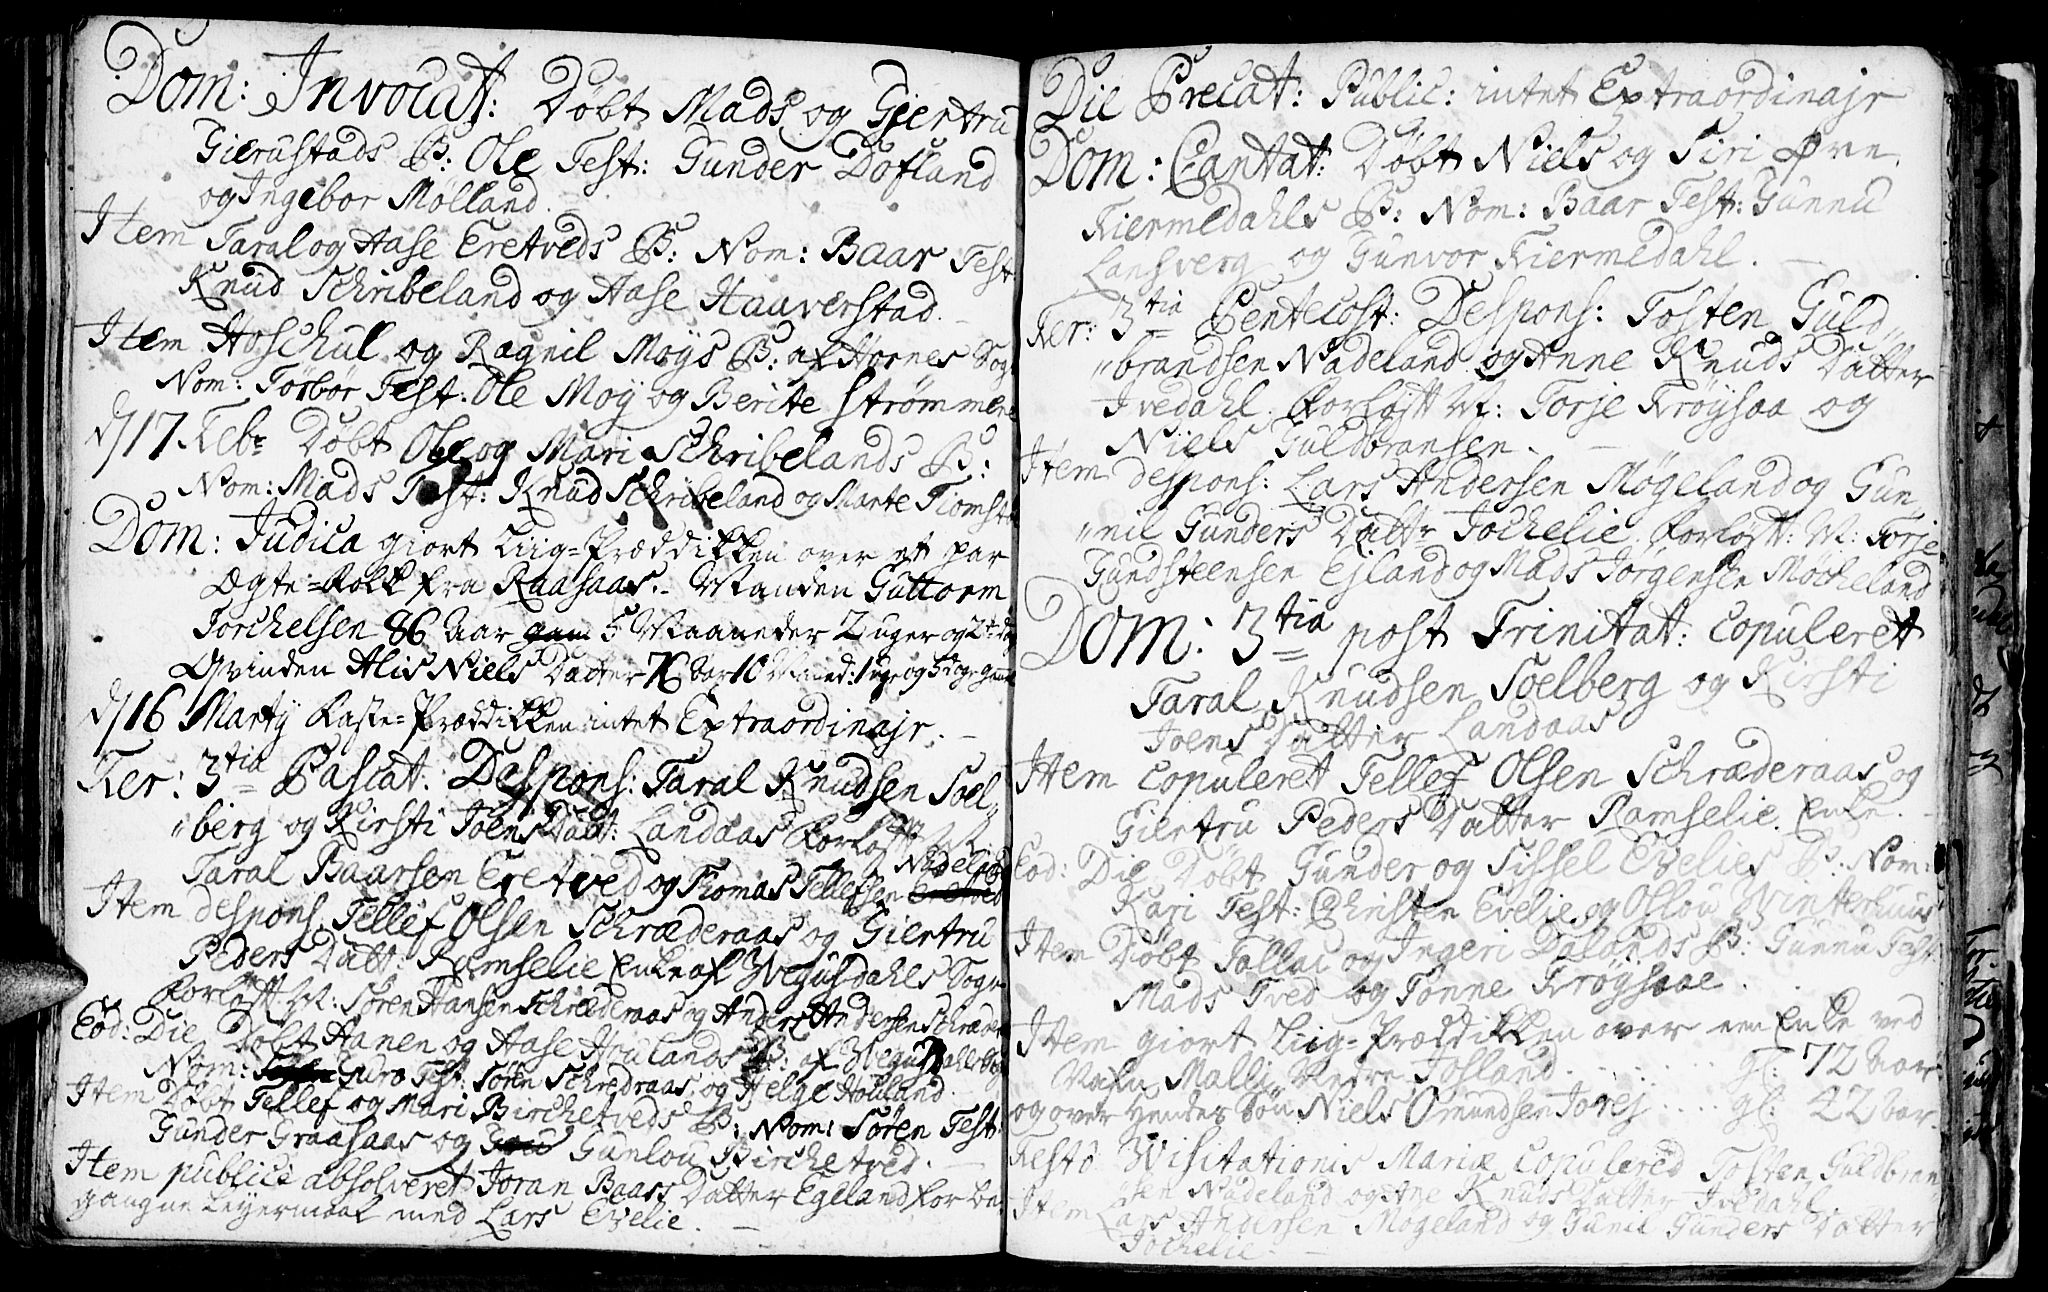 Dom: Invocat: Døbt Mads og Giertru
Gierustads B: Ole Test: Gunder Dofland
og Ingebor Mølland.
Item Taral og Aase Eretveds B: Nom: Baar Test
Knud Schribeland og Aase Haaverstad.
Item Hoschul og Ragnil Moys B: af Hornes Sogn
Nom: Torbor Test: Ole Moy og Berite Strømmene
d/17 Feb: Døbt Ole og Mari Schribelands B:
Nom: Mads Test: Knud Schribeland og Marte
Dom: Judica giort Liig=Præddikken over et par
Ægte=Folk fra Raasaas. Manden Guttorm
Torchelsen 86 Aar 5 Maaneder 2 uger og 2
Qvinden Alis Niels Datter 76 Aar 10 Maaned: 1 uge og 5
d/16 Marty Faste=Præddikken intet Extraordinajr.
Fer: 3tia Pascat: Despons: Taral Knudsen Soel
berg og Kirsti Joens Datt: Landaas Forløft M:
Taral Baarsen Eretved og Thomas Tellefsen Nidelied
Item despons: Tellef Olsen Schræderaas og Giertru
Peders Datt: Ramselie Enke af Wegusdahls Sogn
Forløft M: Søren Hansen Schræderaas og Anders Andersen Schræder
Eod: Die Døbt Hanen og Aase Houlands B: af Wegusdahls Sogn
Nom: Guro Test: Søren Schredraas og Helge Houland.
Item Døbt Tellef og Mari Birchetveds B: Nom: Søren Test:
Gunder Graasaas og Gunlou Birchetved.
Item publice absolveret Joran Baars Datter Egeland for be
gangne Leyermaal med Lars Evelie.
Die Precat: Public: intet Extraordinajr
Dom: Cantat: Døbt Niels og Siri Øvre
Kiermedahls B: Nom: Baar Test: Gunnu
Lansverg og Gunvor Kiermedahl.
Fer: 3tia Pentecost: Despons: Tosten Guld
brandsen Nadeland og Anne Knuds Datter
Ivedahl. Forløft M: Torje Frøysaa og
Niels Guldbransen.
Item despons: Lars Andersen Møgeland og Gun
nil Gunders Datt: Tochelie Forløft: M: Torje
Gundsteensen Ejland og Mads Jørgensen Møcheland
Dom: 3tia post Trinitat: Copuleret
Taral Knudsen Soelberg og Kirsti
Joens Datter Landaas
Item Copuleret Tellef Olsen Schræderaas og
Giertru Peders Datter Ramselie Enke.
Eod: Die Døbt Gunder og Sissel Evelies B: Nom:
Kari Test: Christen Evelie og Oslou Winterhuus
Item Døbt Tallac og Ingeri Dalands B: Gunnu Test
Mads Tved og Tonne Frøysaae.
Item giort Liig=Præddikken over een Enke ved
Nafn Malli Nedre Fosland gl: 72 Aar
og over hendes Søn Niels Omundsen gl: 42 Aar.
Festo Visitationis Mariæ Copulered Tosten Guldbran
sen Nadeland og Ane Knuds Datter Ivedahl
Item Lars Andersen Møgeland og Gunil Gunders Datter
Tochelie.